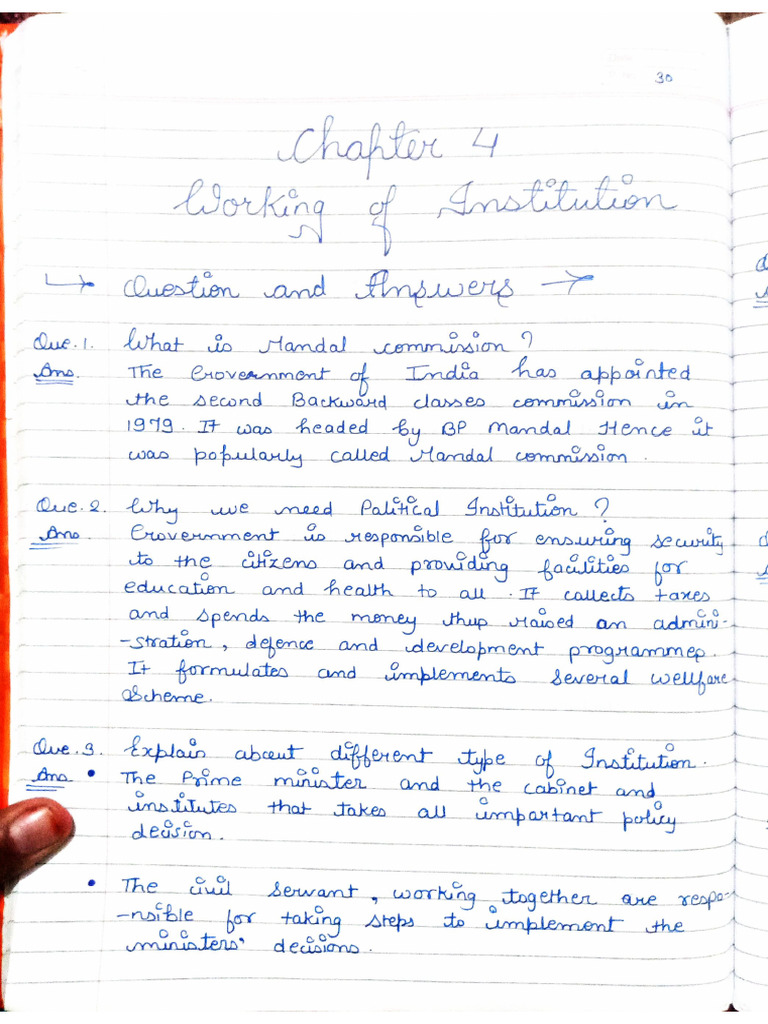 30
Chapter 4
Working of Institution
Question and Answers
Que.1. What is Mandal commission?
Ans. The Government of India has appointed
the second Backward classes commission in
1979. It was headed by BP Mandal Hence it
was popularly called Mandal commission.
Que.2. Why we need Political Institution?
Ans. Government is responsible for ensuring security
to the citizens and providing facilities for
education and health to all. It collects taxes
and spends the money thus raised on admini-
-stration, defence and development programmes.
It formulates and implements several wellfare
Scheme.
Que.3. Explain about different type of Institution.
Ans • The Prime minister and the cabinet and
institutes that takes all important policy
decision.
• The civil servant, working together are respo-
-nsible for taking steps to implement the
ministers' decisions.